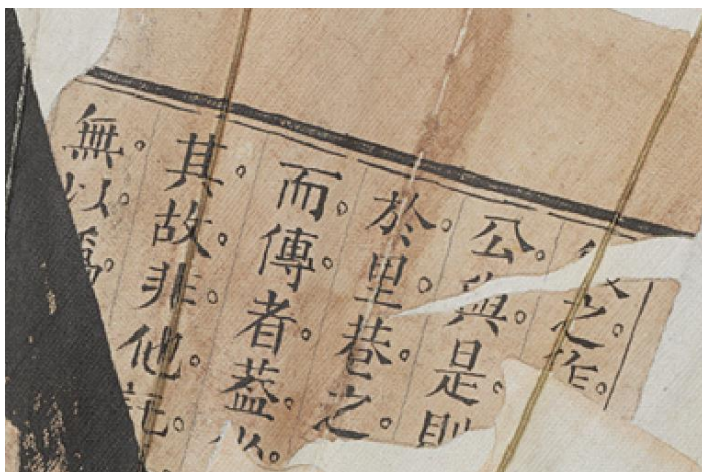 之作
公與是則
於里巷之
而傳者葢
其故非他記
無以